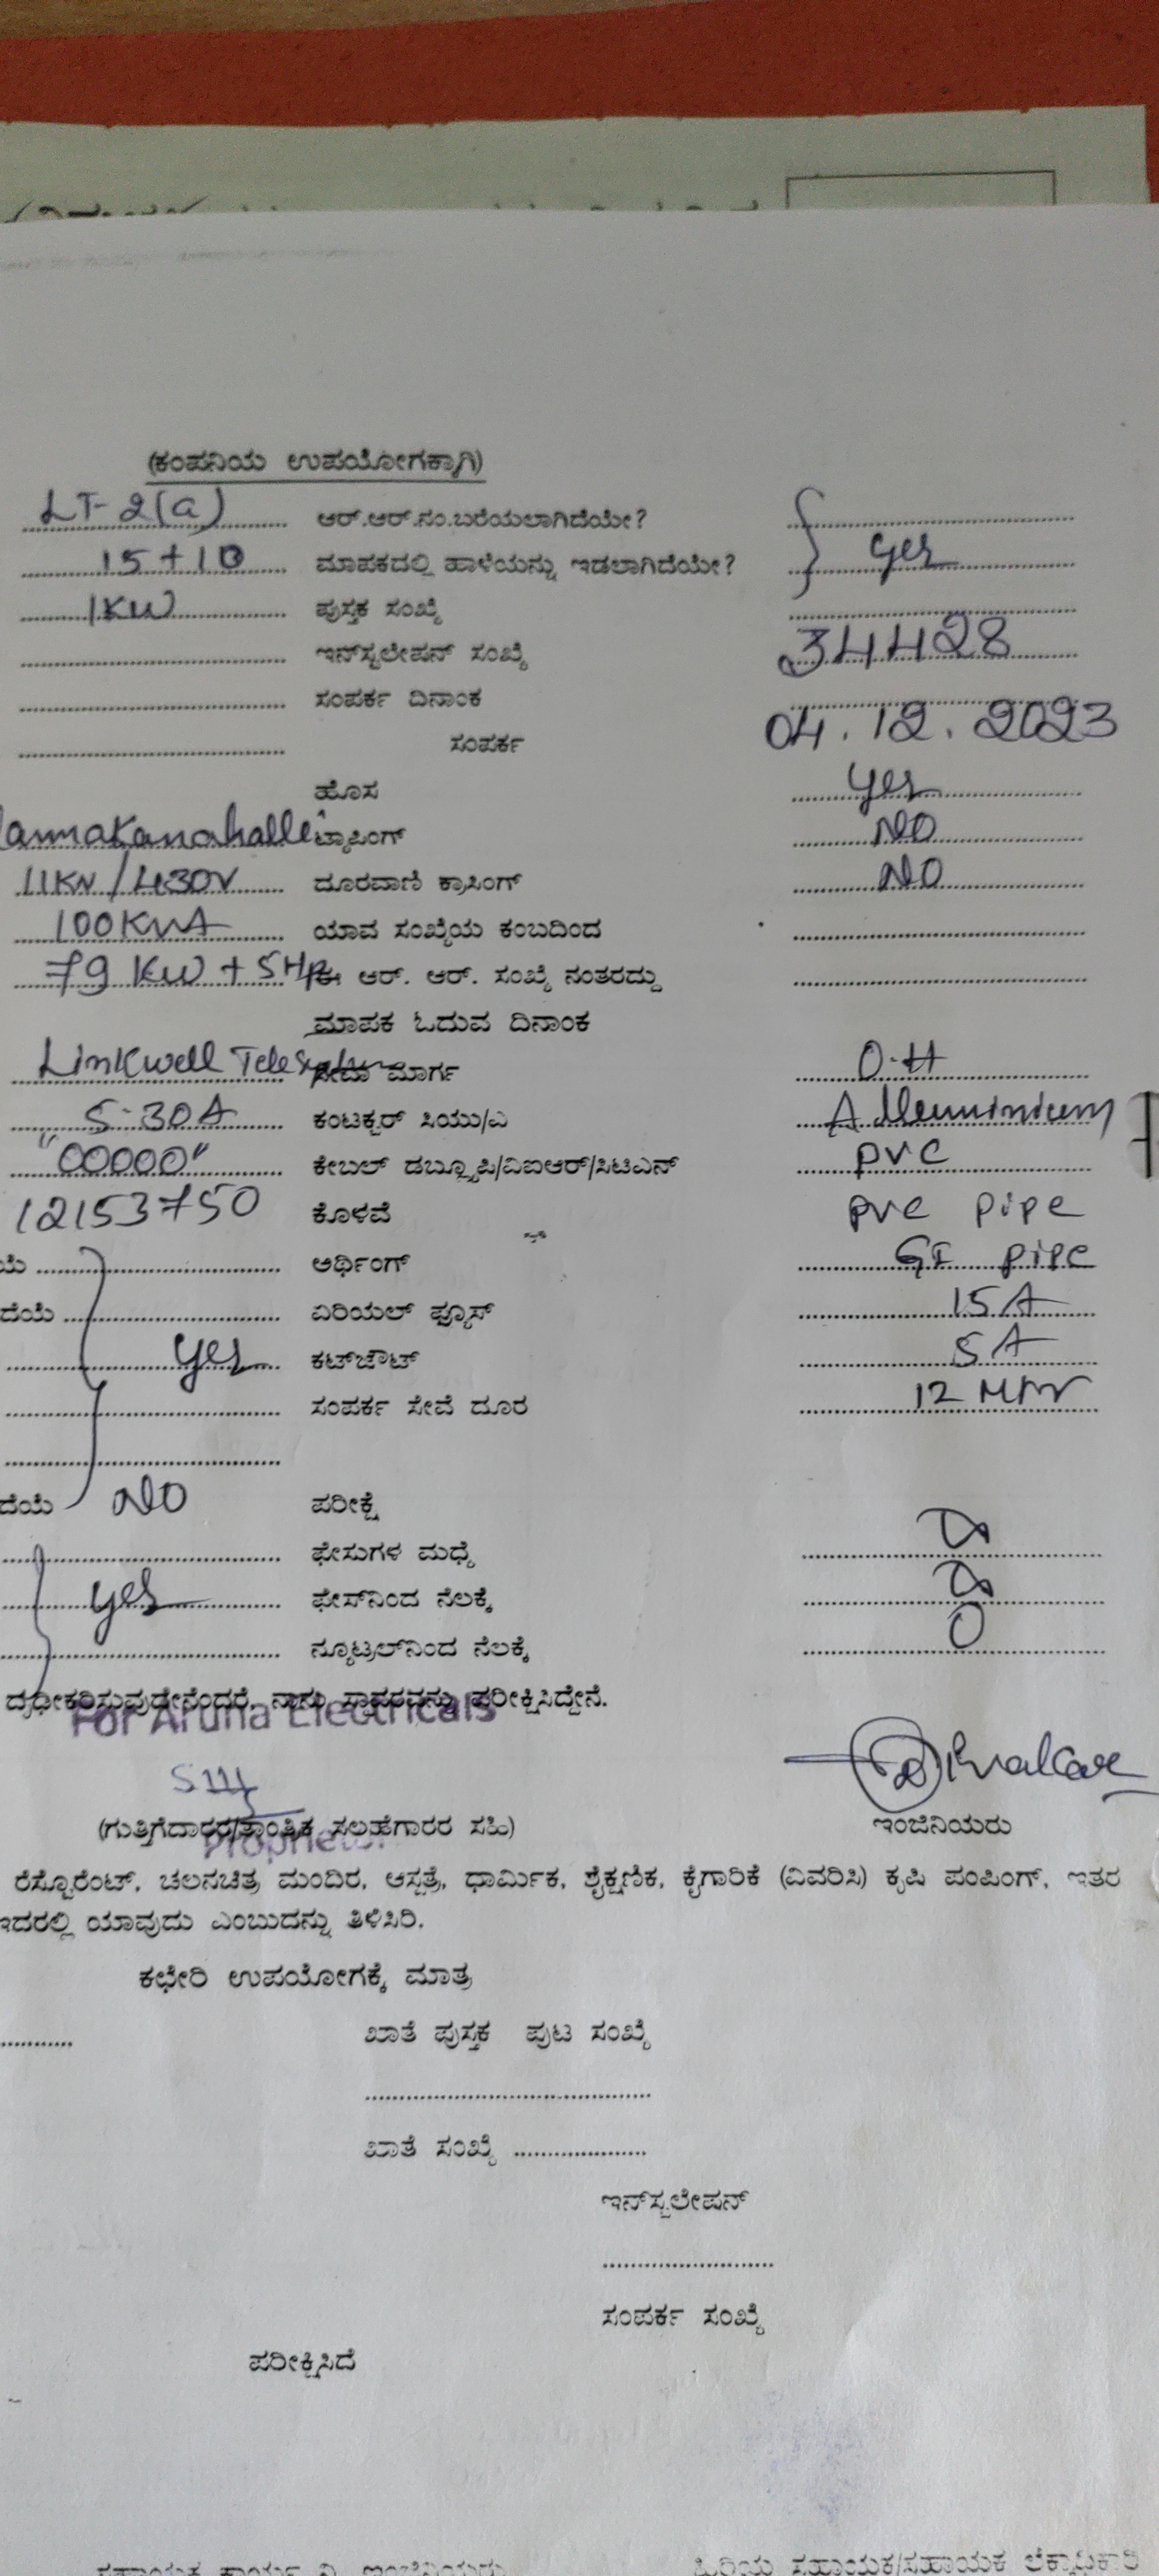 (ಕಂಪನಿಯ ಉಪಯೋಗಕ್ಕಾಗಿ)
LT-2(a) ಆರ್.ಆರ್.ನಂ.ಬರೆಯಲಾಗಿದೆಯೇ?
15+10 ಮಾಪಕದಲ್ಲಿ ಹಾಳೆಯನ್ನು ಇಡಲಾಗಿದೆಯೇ? } yes
1KW ಪುಸ್ತಕ ಸಂಖ್ಯೆ
ಇನ್‌ಸ್ಟಲೇಷನ್ ಸಂಖ್ಯೆ 34428
ಸಂಪರ್ಕ ದಿನಾಂಕ
ಸಂಪರ್ಕ 04.12.2023
ಹೊಸ yes
ಟ್ಯಾಪಿಂಗ್ NO
11KV/430V ದೂರವಾಣಿ ಕ್ರಾಸಿಂಗ್ NO
100KVA ಯಾವ ಸಂಖ್ಯೆಯ ಕಂಬದಿಂದ
79 KW + 5Hp ಈ ಆರ್. ಆರ್. ಸಂಖ್ಯೆ ನಂತರದ್ದು
ಮಾಪಕ ಓದುವ ದಿನಾಂಕ
Linkwell ಮಾರ್ಗ O.H
5-30A ಕಂಟಕ್ಟರ್ ಸಿಯು/ಎ Alleuminium
"00000" ಕೇಬಲ್ ಡಬ್ಲ್ಯೂಪಿ/ವಿಐಆರ್/ಸಿಟಿಎನ್ PVC
12153750 ಕೊಳವೆ PVC pipe
ಯೆ ಅರ್ಥಿಂಗ್ GI pipe
ದೆಯೆ ಏರಿಯಲ್ ಫ್ಯೂಸ್ 15A
yes ಕಟ್‌ಔಟ್ 5A
ಸಂಪರ್ಕ ಸೇವೆ ದೂರ 12
ದೆಯೆ NO ಪರೀಕ್ಷೆ
ಫೇಸುಗಳ ಮಧ್ಯೆ
yes ಫೇಸ್‌ನಿಂದ ನೆಲಕ್ಕೆ
ನ್ಯೂಟ್ರಲ್‌ನಿಂದ ನೆಲಕ್ಕೆ 0
ದೃಢೀಕರಿಸುವುದೇನೆಂದರೆ, ನಾನು ಸ್ಥಾವರವನ್ನು ಪರೀಕ್ಷಿಸಿದ್ದೇನೆ.
For Aruna Electricals
(ಗುತ್ತಿಗೆದಾರರ/ತಾಂತ್ರಿಕ ಸಲಹೆಗಾರರ ಸಹಿ) ಇಂಜಿನಿಯರು
Proprietor
ರೆಸ್ಟೊರೆಂಟ್, ಚಲನಚಿತ್ರ ಮಂದಿರ, ಆಸ್ಪತ್ರೆ, ಧಾರ್ಮಿಕ, ಶೈಕ್ಷಣಿಕ, ಕೈಗಾರಿಕೆ (ವಿವರಿಸಿ) ಕೃಷಿ ಪಂಪಿಂಗ್, ಇತರ
ಇದರಲ್ಲಿ ಯಾವುದು ಎಂಬುದನ್ನು ತಿಳಿಸಿರಿ.
ಕಛೇರಿ ಉಪಯೋಗಕ್ಕೆ ಮಾತ್ರ
ಖಾತೆ ಪುಸ್ತಕ ಪುಟ ಸಂಖ್ಯೆ
ಖಾತೆ ಸಂಖ್ಯೆ
ಇನ್‌ಸ್ಟಲೇಷನ್
ಸಂಪರ್ಕ ಸಂಖ್ಯೆ
ಪರೀಕ್ಷಿಸಿದೆ